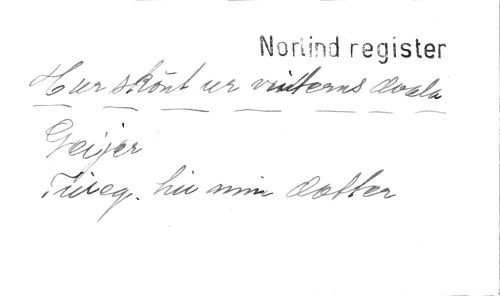 Norlind register
Hur skönt ur vinterns dvala
Geijer
Tilleg. til min dotter